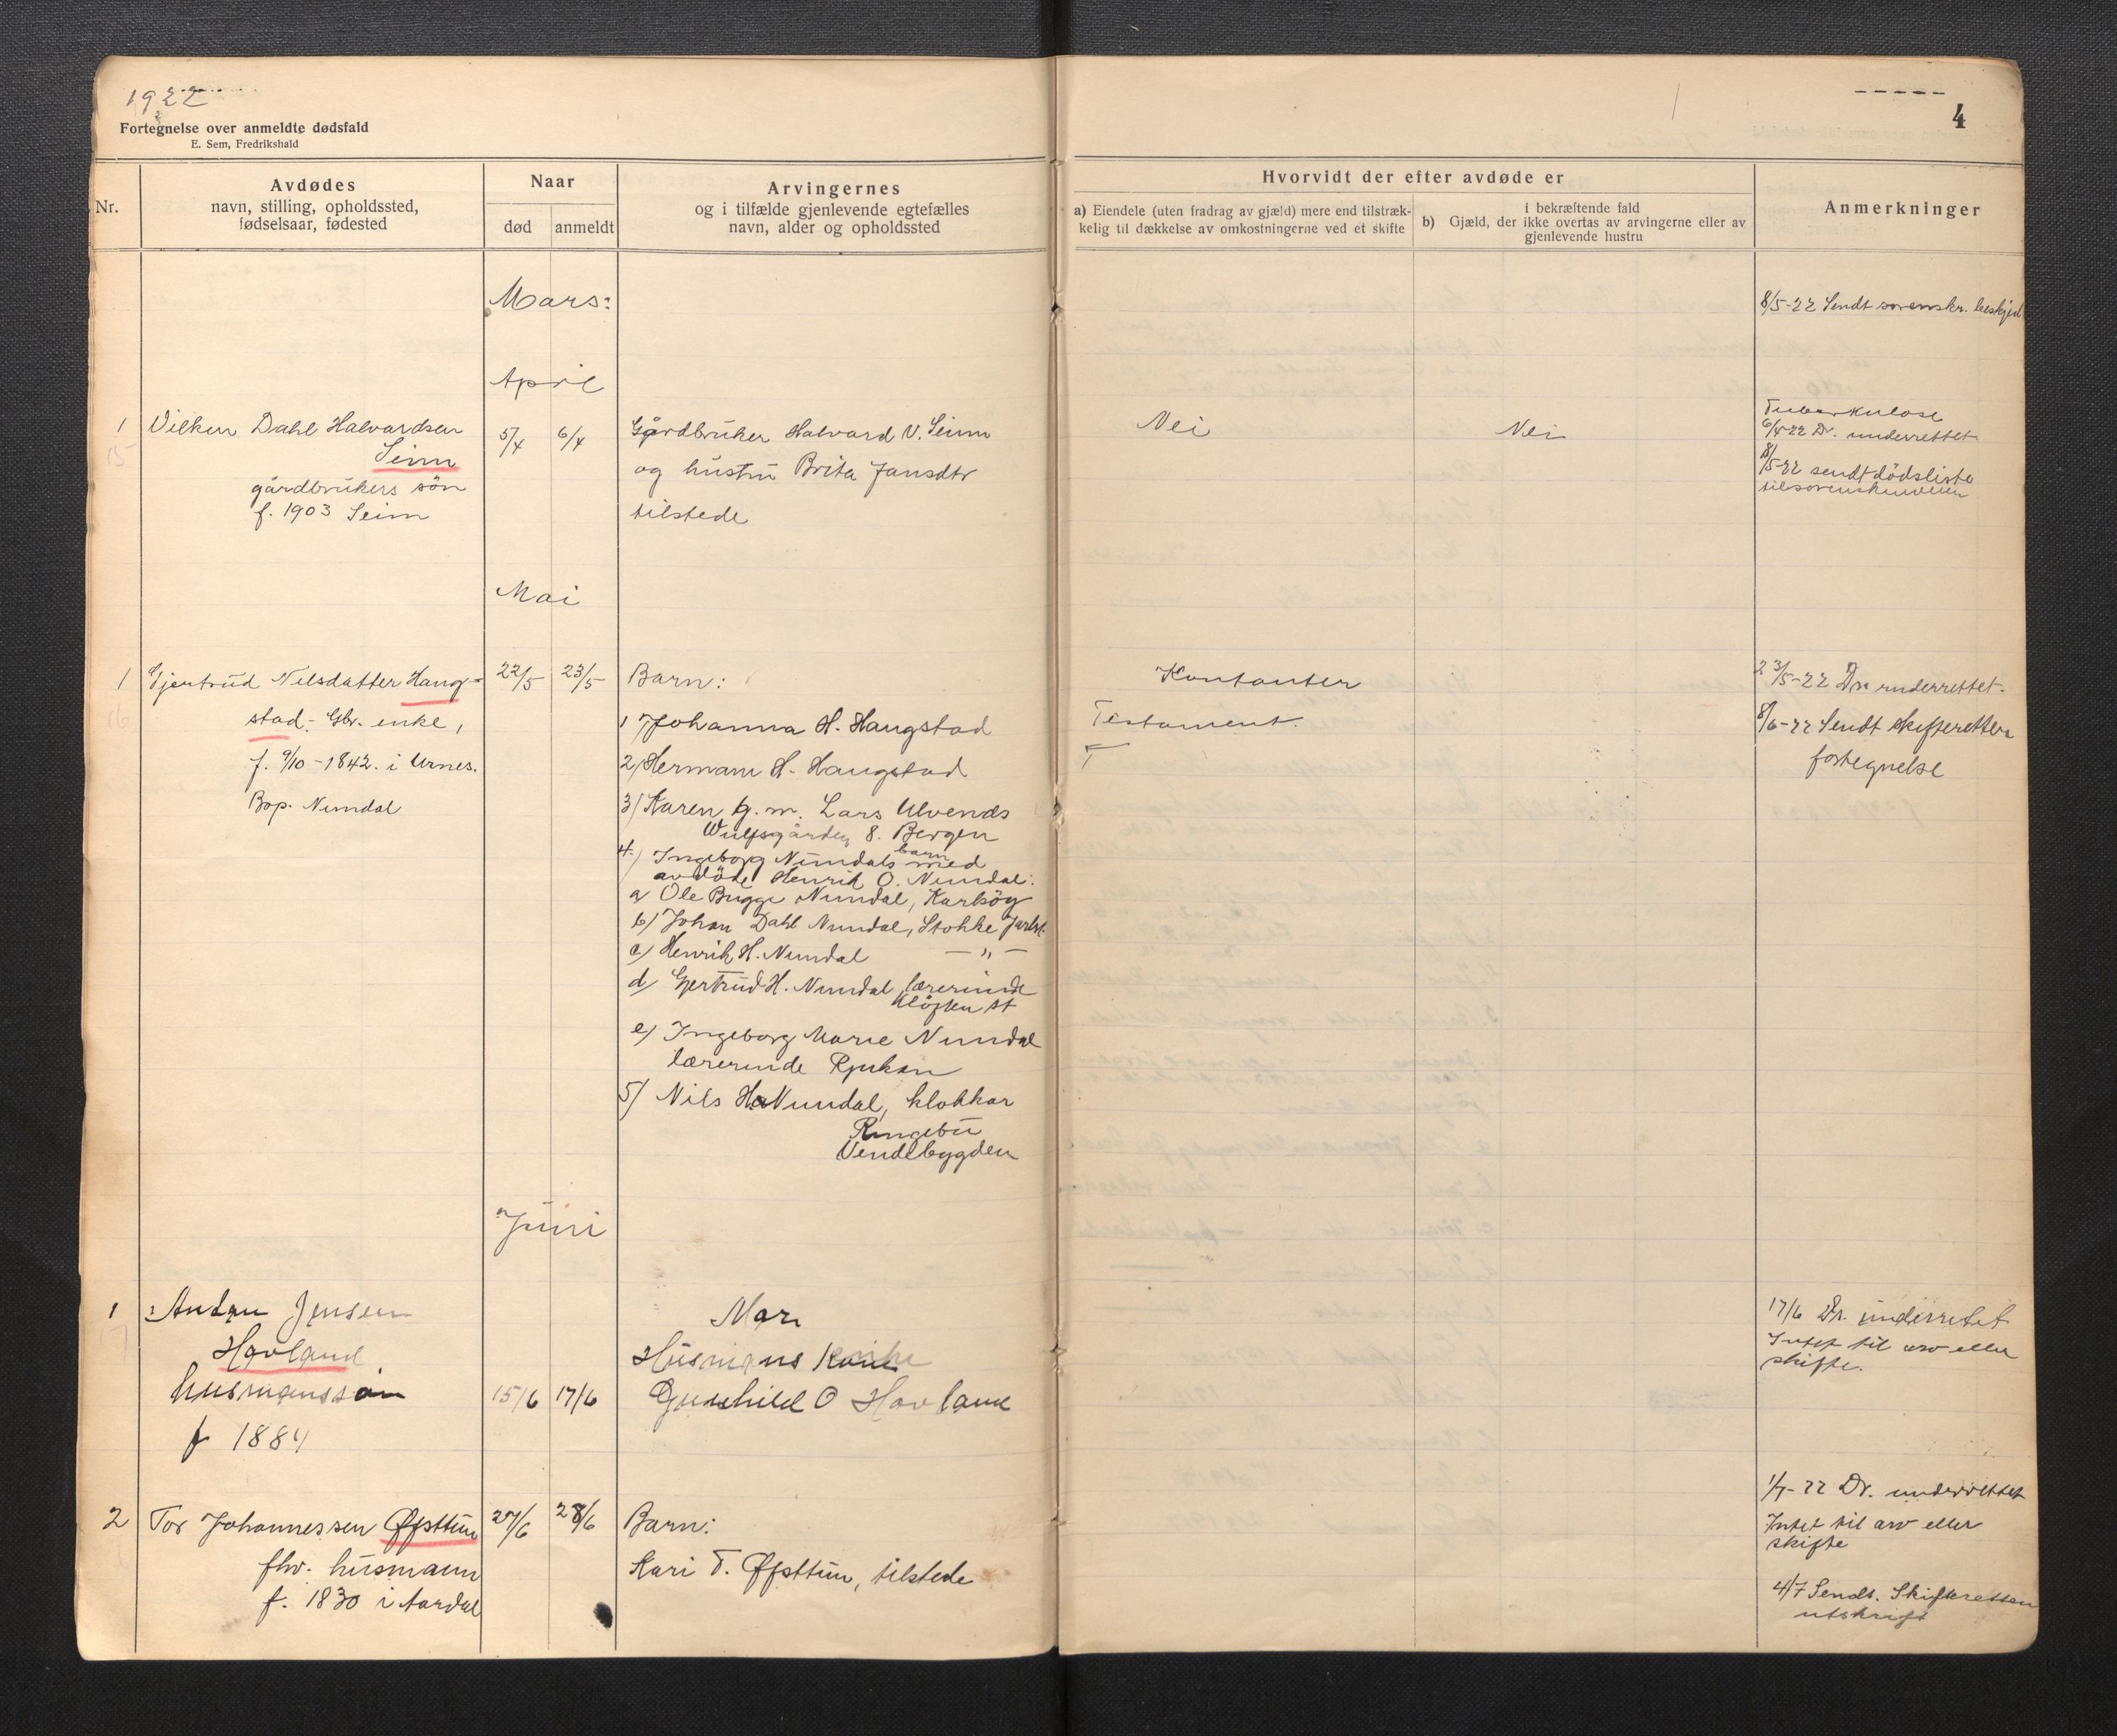 1922
Fortegnelse over anmeldte dødsfald
E. Sem, Fredrikshald
4
Nr.
Avdødes
navn, stilling, opholdssted,
fødselsaar, fødested
Naar
død
anmeldt
Arvingernes
og i tilfælde gjenlevende egtefælles
navn, alder og opholdssted
Hvorvidt der efter avdøde er
a) Eiendele (uten fradrag av gjæld) mere end tilstræk-
kelig til dækkelse av omkostningerne ved et skifte
b)
i bekræftende fald
Gjæld, der ikke overtas av arvingerne eller av
gjenlevende hustru
Anmerkninger
Mars:
8/5-22 Sendt sorenskr. beskjed
April
1
15
Vilken Dahl Halvardsen
Seim
gårdbrukers søn
f. 1903 Seim
5/4
6/4
Gårdbruker Halvard V. Seim
og hustru Brita Jansdtr
tilstede
Nei
Nei
Tuberkulose
6/4-22 Dr. underrettet
8/5-22 sendt dödsliste
til sorenskriveren
Mai
1
16
Gjertrud Nilsdatter Haug-
stad - Gbr. enke,
f. 9/10-1842. i Urnes.
Bop. Nundal
22/5
23/5
Barn:
1) Johanna H. Haugstad
2) Hermann H. Haugstad
3) Karen g. m. Lars Ulvends
Wulfsgården 8. Bergen
4) Ingeborg Nundals barn med
avdöde Henrik O. Nundal:
a) Ole Bugge Nundal,
b) Johan Dahl Nundal, Stokke Jarlsb.
c) Henrik H. Nundal — „ —
d) Gjertrud H. Nundal, lærerinde
Kløften st
e) Ingeborg Marie Nundal
lærerinde Rjukan
5) Nils H. Nundal, klokkar
Ringebu
Vendebygden
Kontanter
Testament.
23/5-22 Dr. underrettet.
8/6-22 Sendt skifteretten
fortegnelse
Juni
1
17
Jensen
Hovland
husmanssøn
f 1884
15/6
17/6
Mor
Husmans
Gunhild O Hovland
17/6 Dr. underretet
Intet til arv eller
skifte.
2
Tor Johannessen Øfsttun
fhv. husmann
f. 1830 i Aardal
27/6
28/6
Barn:
Kari T. Øfsttun, tilstede
1/7-22 Dr. underrettet
Intet til arv eller
skifte
4/7 Sendt. Skifteretten
utskrift